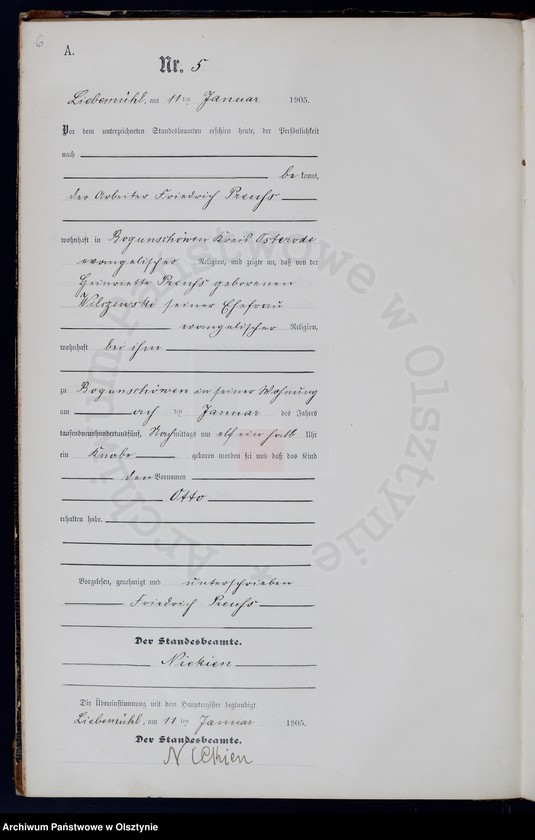 6
A.
Nr. 5
Liebemühl, am 11 ten Januar 1905.
Vor dem unterzeichneten Standesbeamten erschien heute, der Persönlichkeit
nach
be kannt,
der Arbeiter Friedrich Preuß
wohnhaft in Bogunschöwen Kreis Osterode
evangelischer Religion, und zeigte an, daß von der
Henriette Preuß geborenen
Wilczewski seiner Ehefrau
evangelischer Religion,
wohnhaft bei ihm
zu Bogunschöwen in seiner Wohnung
am acht ten Januar des Jahres
tausendneunhundertundfünf, Nachmittags um elf ein halb Uhr
ein Knabe geboren worden sei und daß das Kind
den Vornamen
Otto
erhalten habe.
Vorgelesen, genehmigt und unterschrieben
Friedrich Preuß
Der Standesbeamte.
Die Übereinstimmung mit dem Hauptregister beglaubigt
Liebemühl, am 11 ten Januar 1905.
Der Standesbeamte.
Archiwum Państwowe w Olsztynie
Archiwum Państwowe w Olsztynie